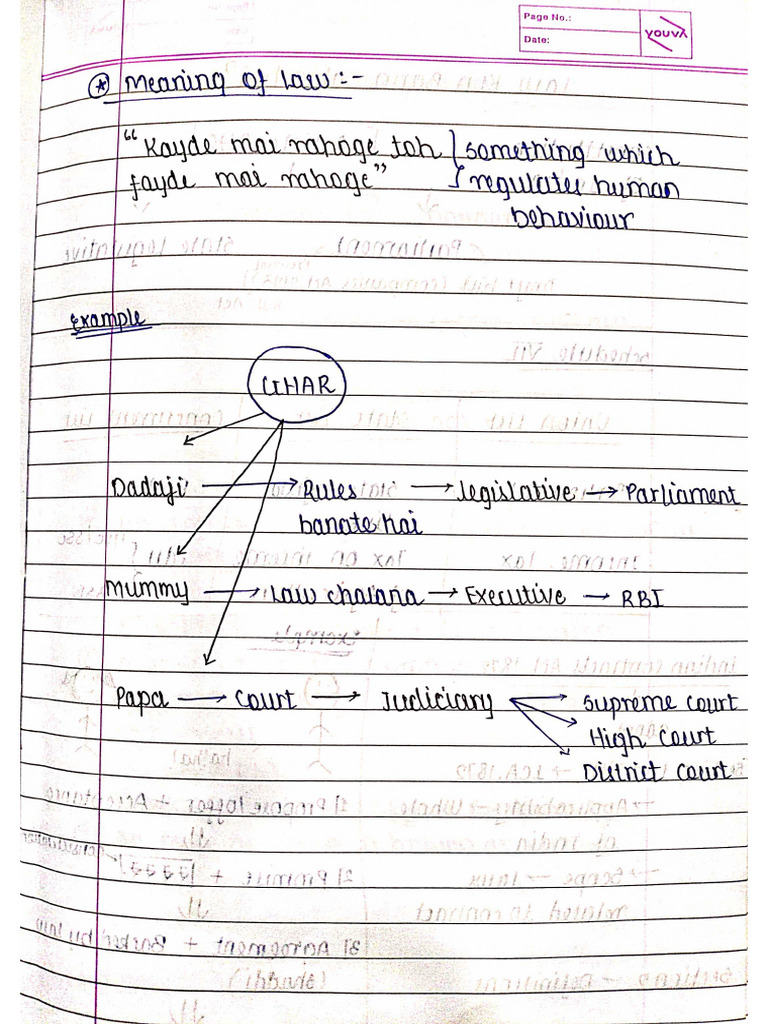 Page No.:
Date:
YOUVA
* Meaning of Law :-
"Kayde mai rahoge toh } something which
fayde mai rahoge" } regulates human
behaviour
Example
GHAR
Dadaji → Rules → Legislative → Parliament
banate hai
Mummy → Law chalana → Executive → RBI
Papa → Court → Judiciary → Supreme court
High court
District court